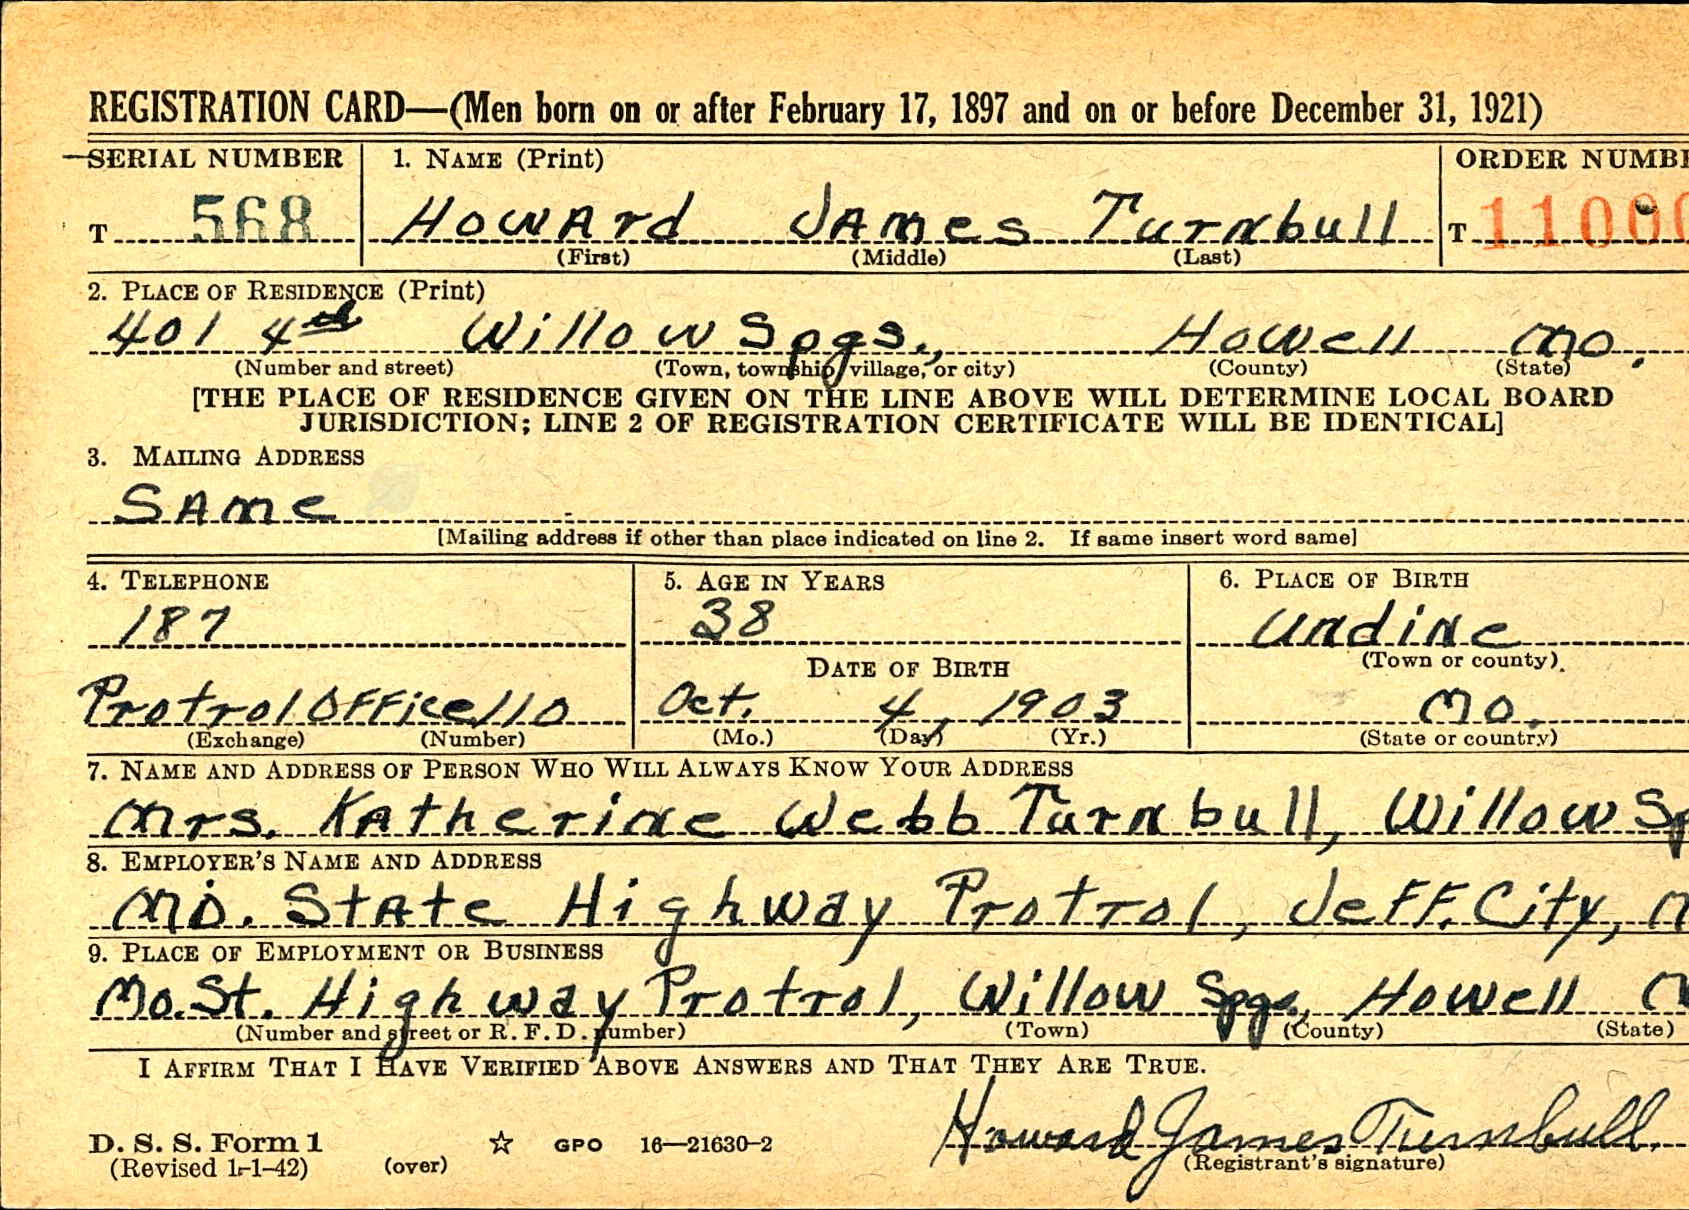 REGISTRATION CARD—(Men born on or after February 17, 1897 and on or before December 31, 1921)
SERIAL NUMBER 1. NAME (Print) ORDER NUMBE
T 568 Howard James Turnbull T 11000
(First) (Middle) (Last)
2. PLACE OF RESIDENCE (Print)
401 4th Willow Spgs., Howell Mo.
(Number and street) (Town, township, village, or city) (County) (State)
[THE PLACE OF RESIDENCE GIVEN ON THE LINE ABOVE WILL DETERMINE LOCAL BOARD
JURISDICTION; LINE 2 OF REGISTRATION CERTIFICATE WILL BE IDENTICAL]
3. MAILING ADDRESS
Same
[Mailing address if other than place indicated on line 2. If same insert word same]
4. TELEPHONE 5. AGE IN YEARS 6. PLACE OF BIRTH
187 38 Undine
DATE OF BIRTH (Town or county)
Protrol Office 110 Oct. 4, 1903 Mo.
(Exchange) (Number) (Mo.) (Day) (Yr.) (State or country)
7. NAME AND ADDRESS OF PERSON WHO WILL ALWAYS KNOW YOUR ADDRESS
Mrs. Katherine Webb Turnbull, Willow Sp
8. EMPLOYER'S NAME AND ADDRESS
Mo. State Highway Protrol, Jeff. City, M
9. PLACE OF EMPLOYMENT OR BUSINESS
Mo. St. Highway Protrol, Willow Spgs., Howell M
(Number and street or R. F. D. number) (Town) (County) (State)
I AFFIRM THAT I HAVE VERIFIED ABOVE ANSWERS AND THAT THEY ARE TRUE.
Howard James Turnbull.
D. S. S. Form 1 ☆ GPO 16—21630-2
(Revised 1-1-42) (over) (Registrant's signature)